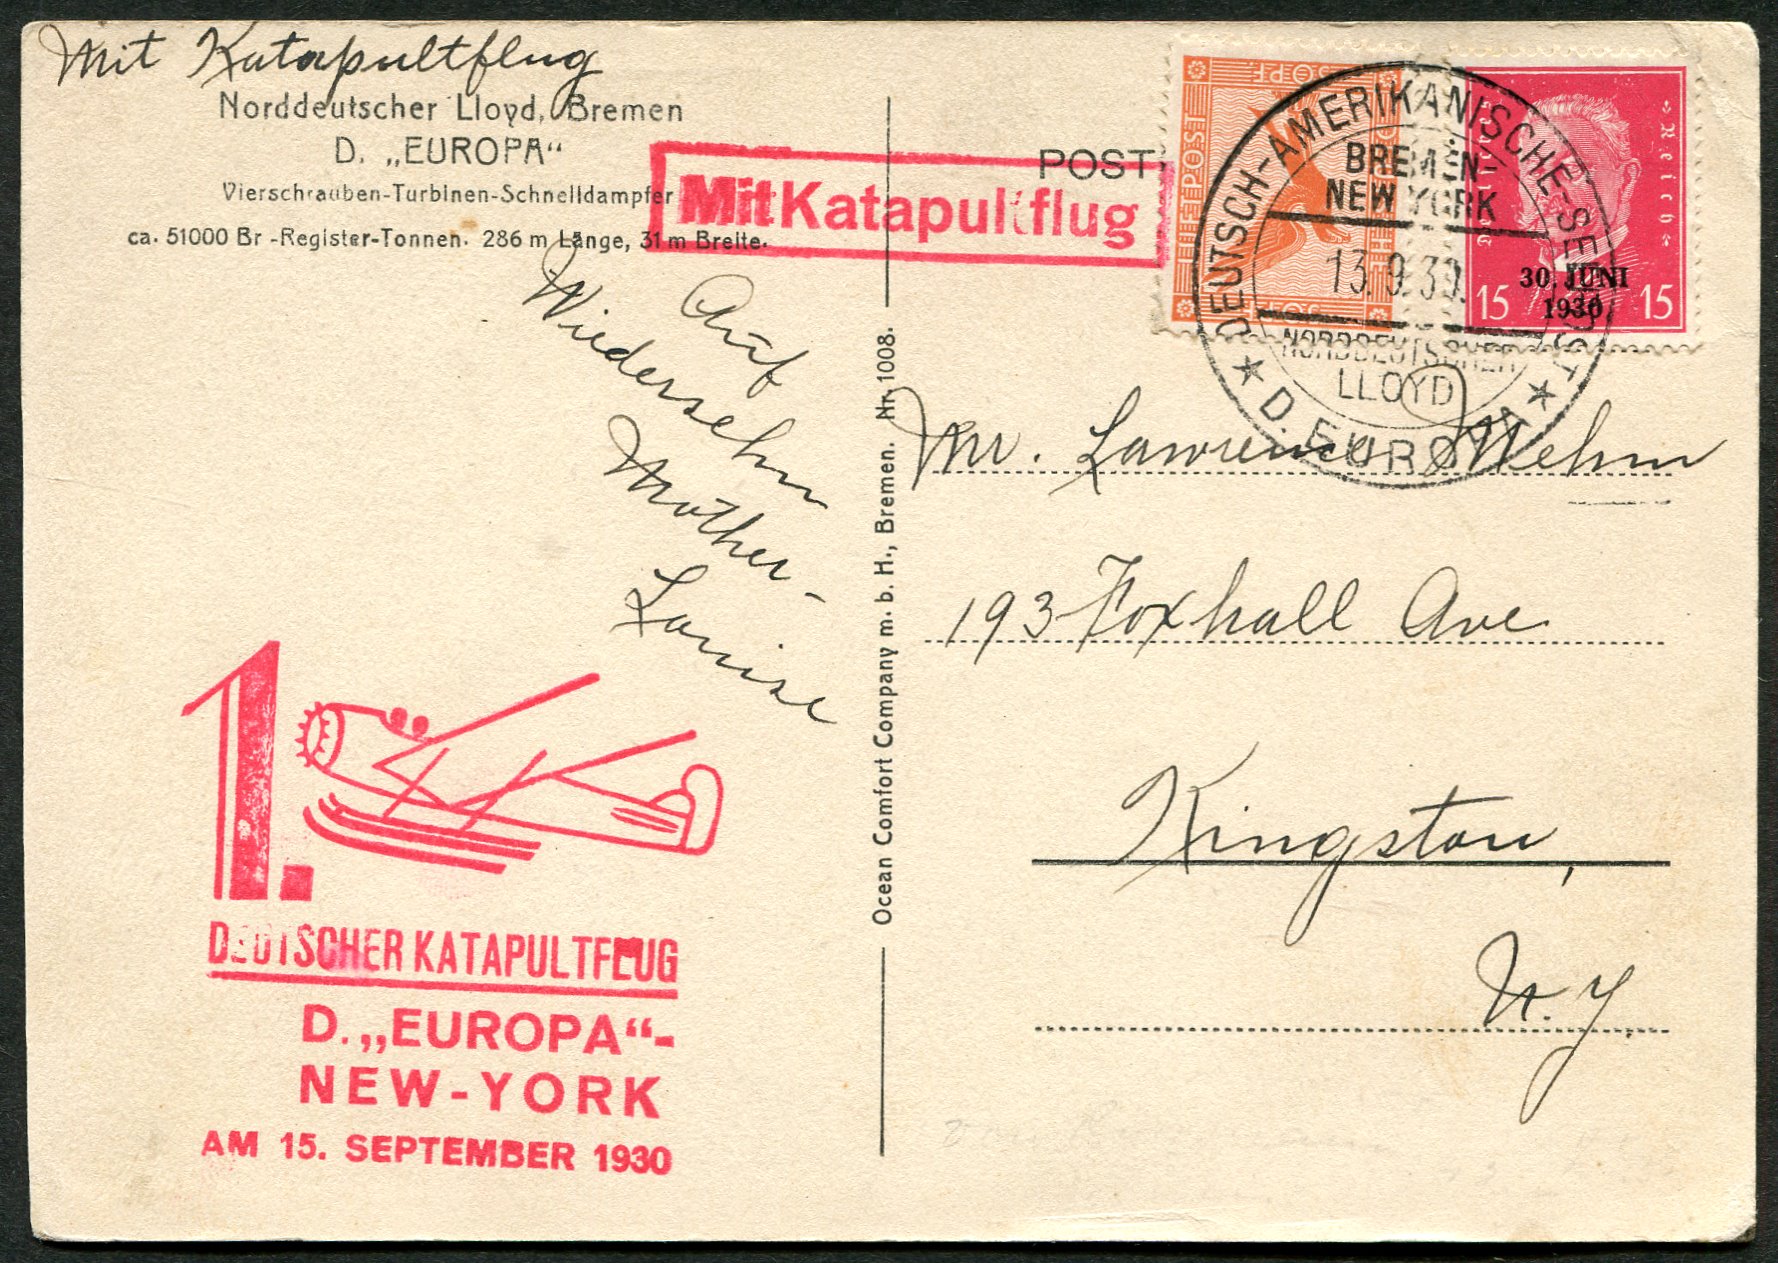 Mit Katapultflug
Norddeutscher Lloyd, Bremen
D. „EUROPA“
Vierschrauben-Turbinen-Schnelldampfer
ca. 51000 Br -Register-Tonnen. 286 m Länge, 31 m Breite.
Mit Katapultflug
POST
Auf
Wiedersehn
Mother -
Louise
1.
DEUTSCHER KATAPULTFLUG
D. „EUROPA“-
NEW-YORK
AM 15. SEPTEMBER 1930
Ocean Comfort Company m. b. H., Bremen. Nr. 1008.
50 PF.
FLUGPOST
DEUTSCH-AMERIKANISCHE-SEEPOST
BREMEN-
NEW YORK
13.9.30.
NORDDEUTSCHER
LLOYD
★ D. EUROPA ★
Deutsches
Reich
30. JUNI
1930
15 15
Mr. Lawrence Mehm
193 Foxhall Ave
Kingston,
N.Y.